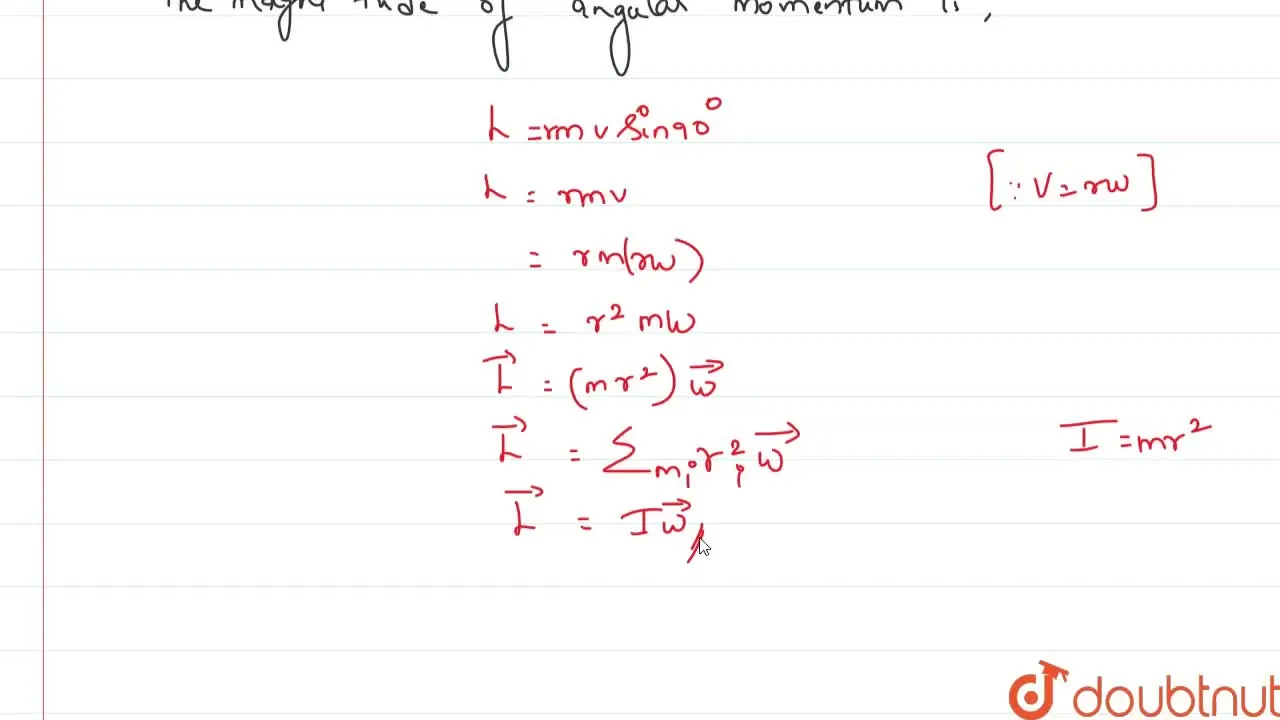 The magni tude of angular momentum is,
L = rmv Sin90⁰
L = rmv
[∵ V = rω]
= rm(rω)
L = r² mω
L⃗ = (mr²) ω⃗
L⃗ = ∑ mᵢ rᵢ² ω⃗
I = mr²
L⃗ = I ω⃗ //
doubtnut